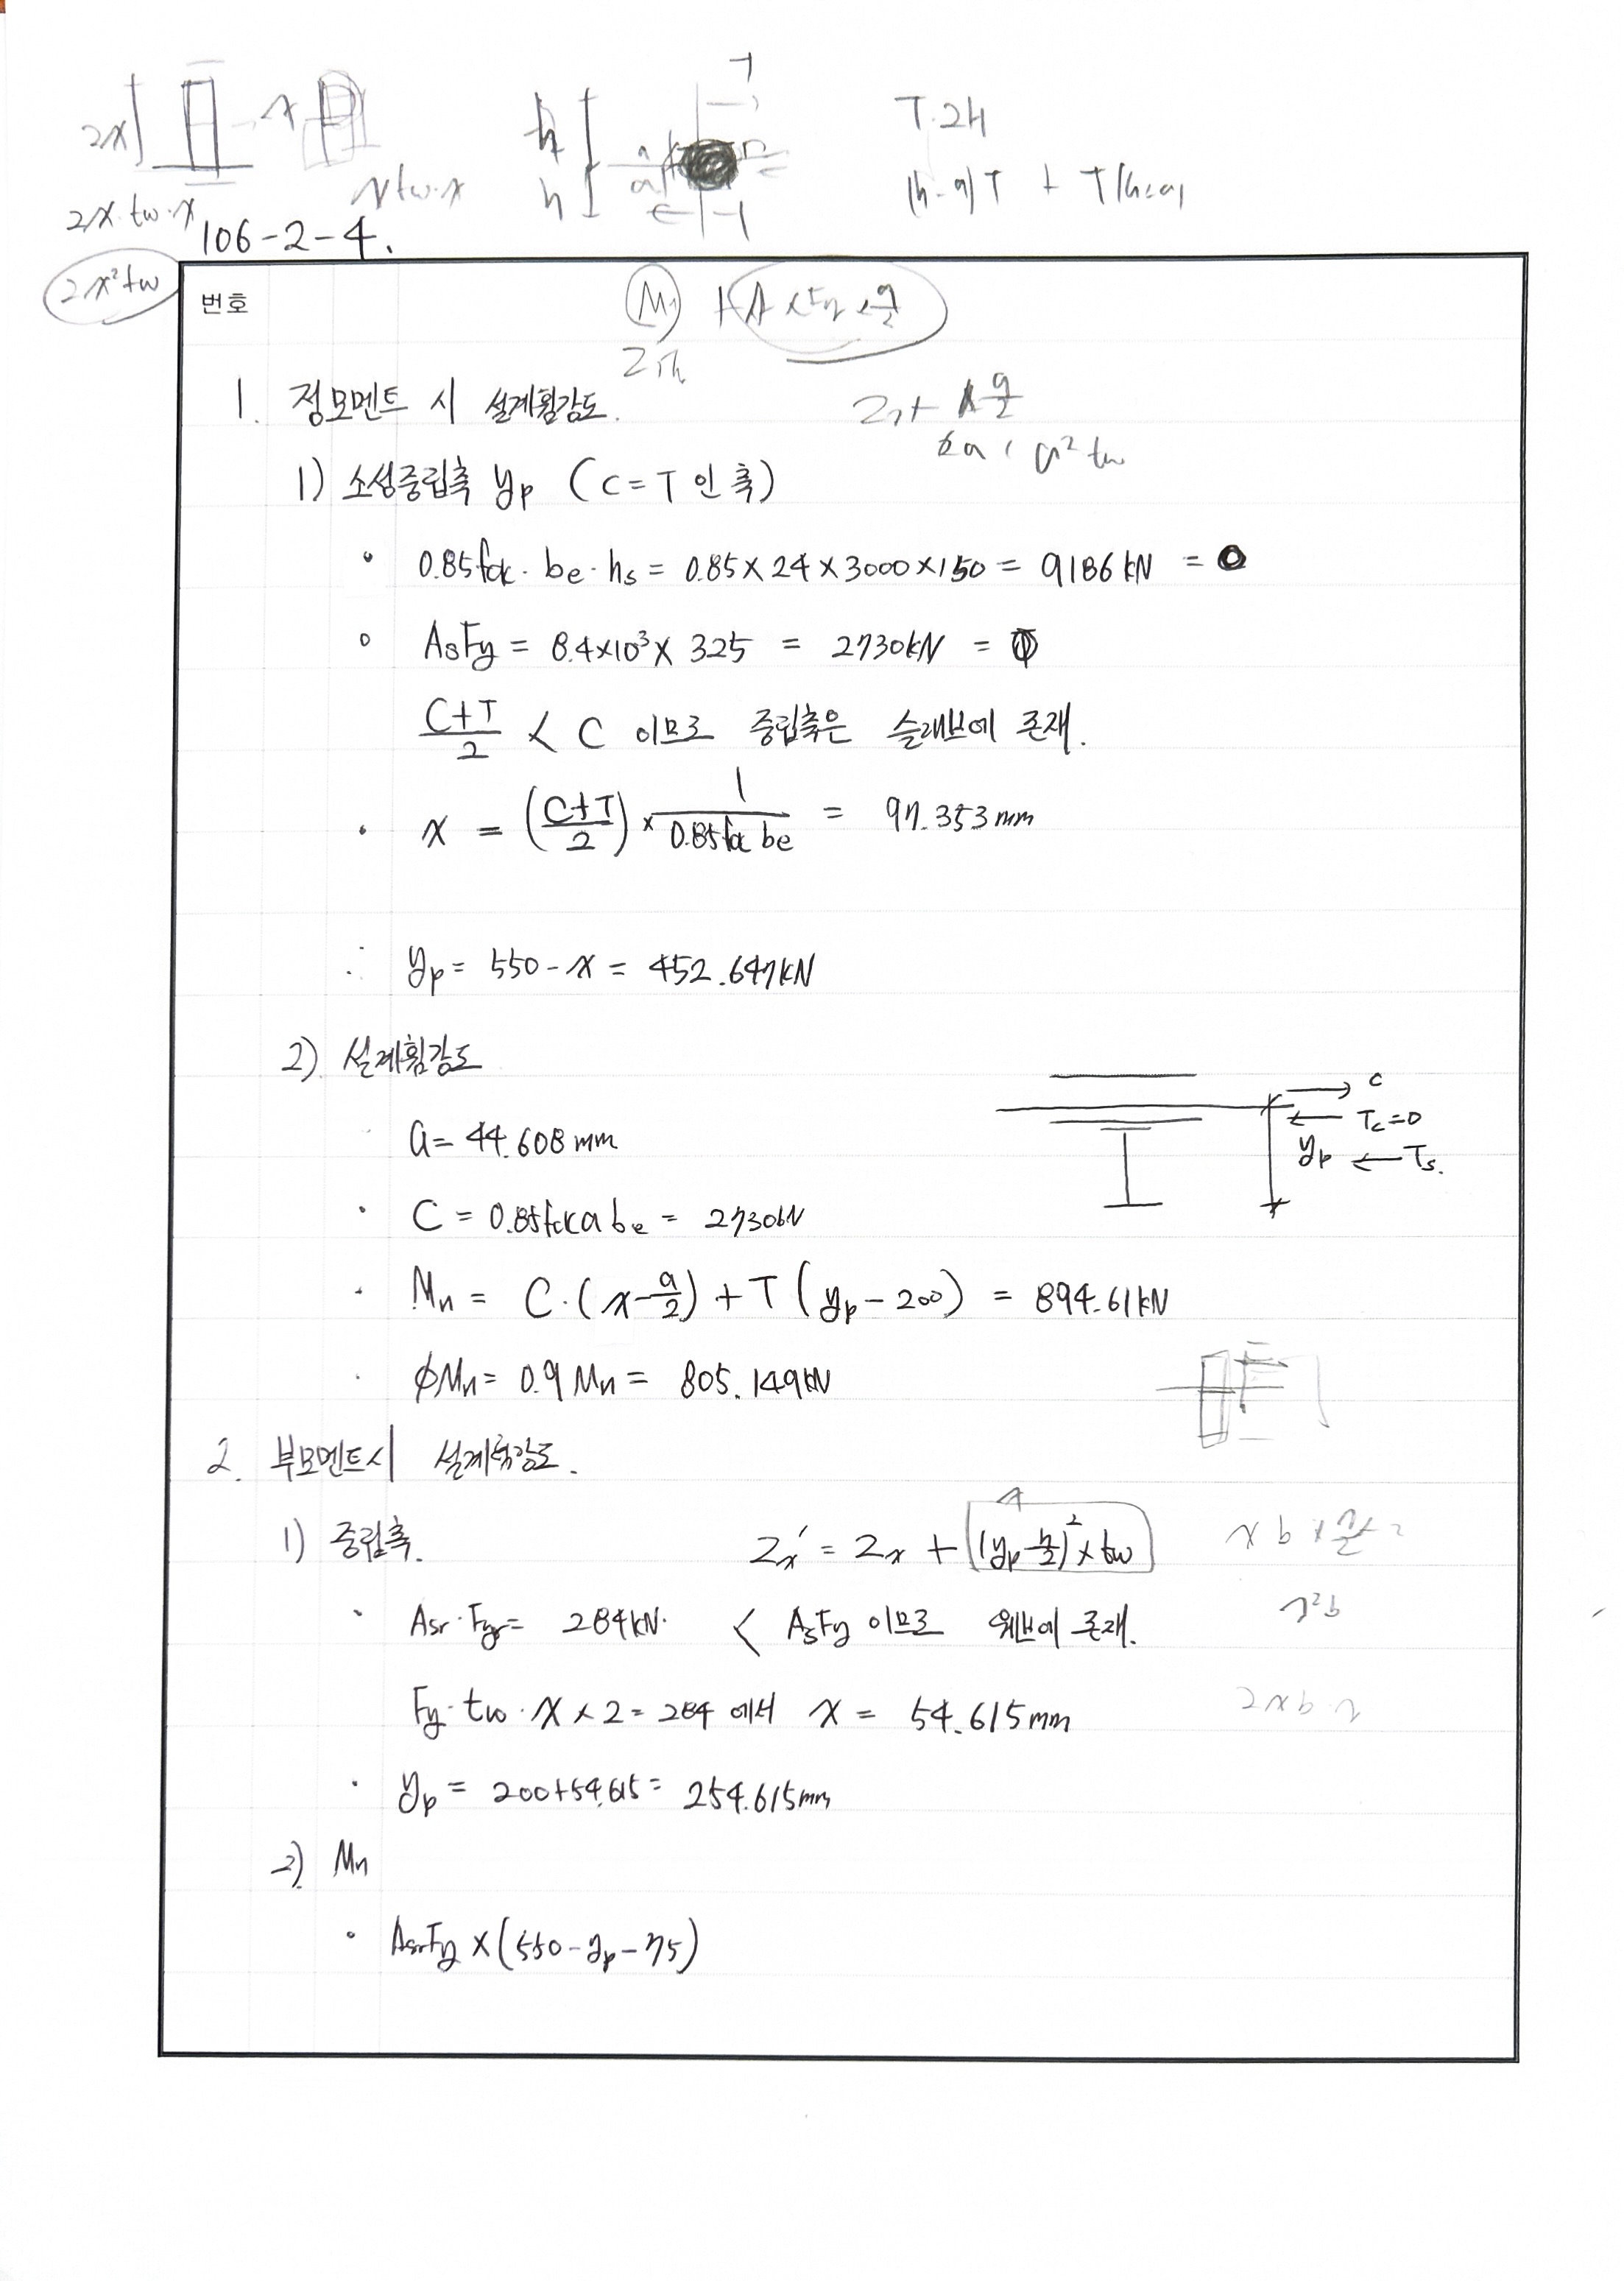 2x
x
2x·tw·x
tw·x
h
h
T·2h
(h-a)T + T(h+a)
106-2-4.
2x²tw
번호
Mn + A×Fy×a/2
1. 정모멘트 시 설계휨강도.
a² tw
1) 소성중립축 yp (C=T 인 축)
∘ 0.85fck · be · hs = 0.85×24×3000×150 = 9186kN =
∘ AsFy = 8.4×10³× 325 = 2730kN =
(C+T)/2 < C 이므로 중립축은 슬래브에 존재.
· x = ((C+T)/2) × 1/(0.85fck be) = 97.353mm
∴ yp = 550-x = 452.647kN
2) 설계휨강도
C
Tc=0
yp ← Ts.
· a= 44.608mm
· C = 0.85fck a be = 2730kN
· Mn = C·(x-a/2) + T(yp-200) = 894.61kN
· ϕMn= 0.9Mn= 805.149kN
2. 부모멘트시 설계휨강도.
1) 중립축. Zx' = Zx + (yp-h/2)²×tw
x²b
· Asr·Fyr= 284kN. < AsFy 이므로 웨브에 존재.
Fy·tw·x×2=284 에서 x = 54.615mm
· yp = 200+54.615= 254.615mm
2) Mn
∘ AsrFy ×(550-yp-75)